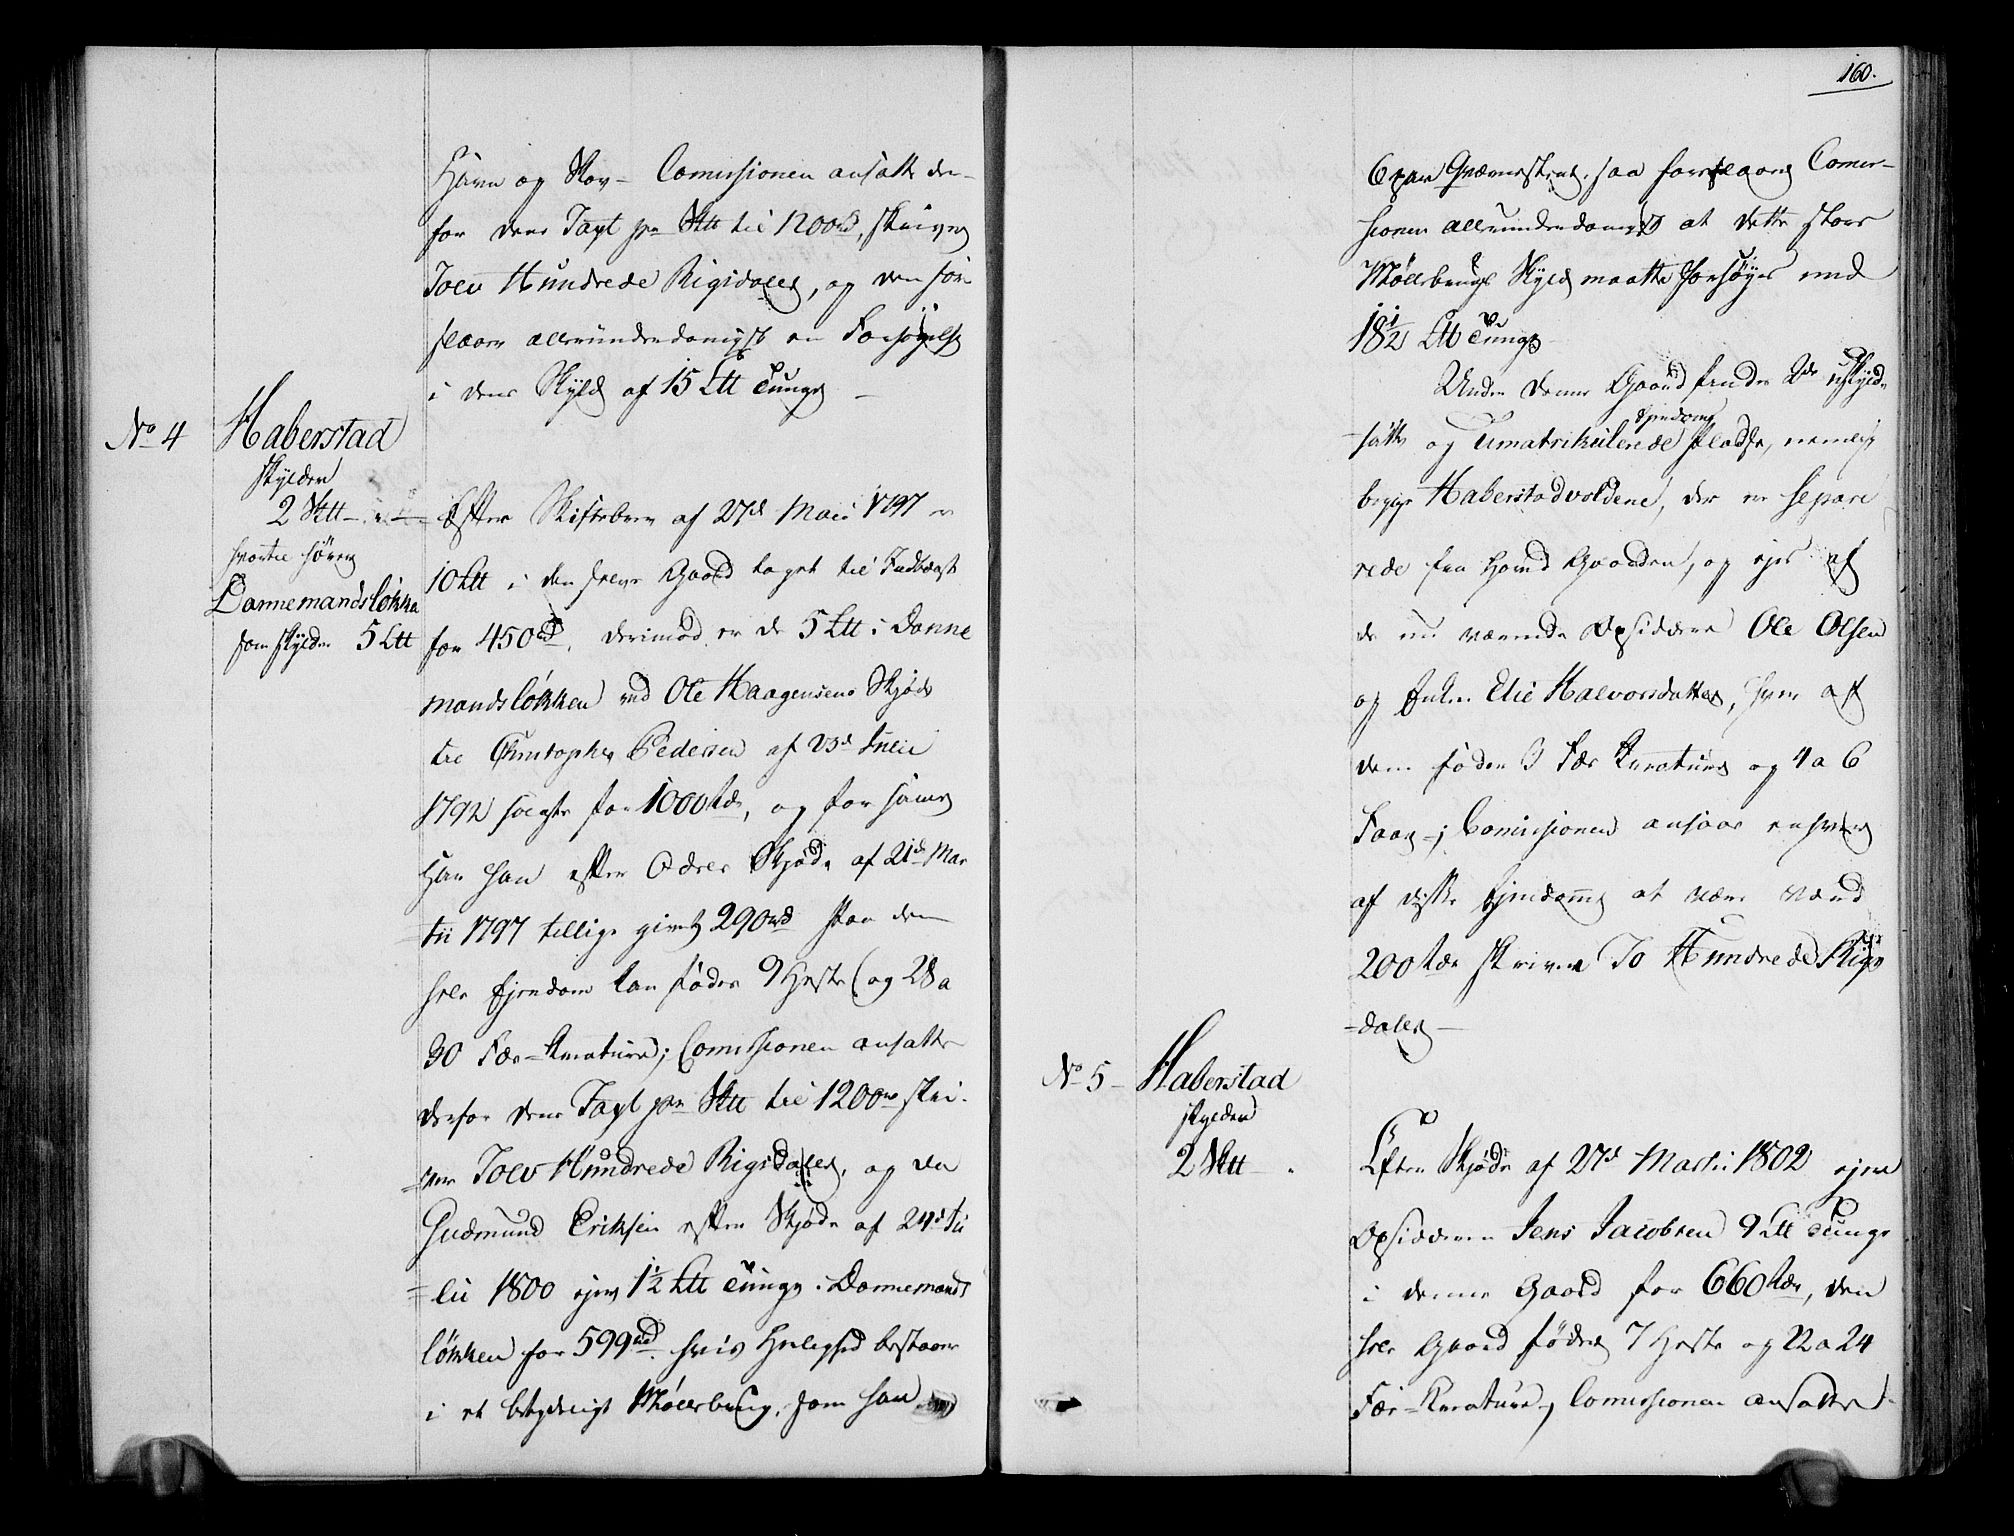 Havn og Skov – Comissionen ansatte der-
for dens Taxt pr Sktt til 1200rd, skriver
Tolv Hundrede Rigsdaler, og den fore
slaaer allerunderdanigst en Forhøyelse
i dens Skyld af 15 Ltt Tunge –
No 4 Haberstad
skylder
2 Sktt – " –
hvortil hører
Dannemandsløkka
som skylder 5 Ltt
Efter Skiftebrev af 27d Maii 1797 er
10 Ltt i den halve Gaard taget til Indtægt
for 450rd. derimod er de 5 Ltt i Danne
mandsløkken ved Ole Haagensens Skjøde
til Christopher Pedersen af 23d Julii
1792 solgte for 1000 rdr, og for samme
har han efter Odels Skjøde af 21de Mar
tii 1797 tillige givet 290rd Paa den
hele Ejendom kan fødes 9 Heste og 28 a
30 Fæe-Kreature; Comissionen ansatte
derfor dens Taxt pr Sktt til 1200rd skri-
ver Tolv Hundrede Rigsdaler, og da
Gudmund Eriksen efter Skjøde af 24d Ju
lii 1800 ejer 1½ Ltt Tunge i Dannemands
løkken for 599rd. hvis Herlighed bestaaer
i et betydeligt Møllebrug, som han
160.
6 par Qværnsteene, saa foreslaaer Comis-
sionen allerunderdanigst at dette store
Møllebrugs Skyld maatte forhøyes med
18½ Ltt Tunge
Under denne Gaard findes 2de uskyld-
satte og Umatrikulerede Ejendoms Pladse, nemlig
begge Haberstadvoldene, der er separe
rede fra Hoved Gaarden, og ejes af
de nu værende Opsiddere Ole Olsen
og Enken Elie Halvorsdatter, hver af
dem føder 3 Fæe Kreature og 4 a 6
Faar –; Comissionen ansaae enhver
af disse Ejendomme at være værd
200 rdr skriver To Hundrede Rigs
daler –
No 5 – Haberstad
skylder
2 Sktt – "
Efter Skjøde af 27d Martii 1802 ejer
Opsidderen Jens Jacobsen 9 Ltt Tunge
i denne Gaard for 660 rdr, den
hele Gaard føder 7 Heste og 22 a 24
Fæe-Kreature, Comissionen ansatte